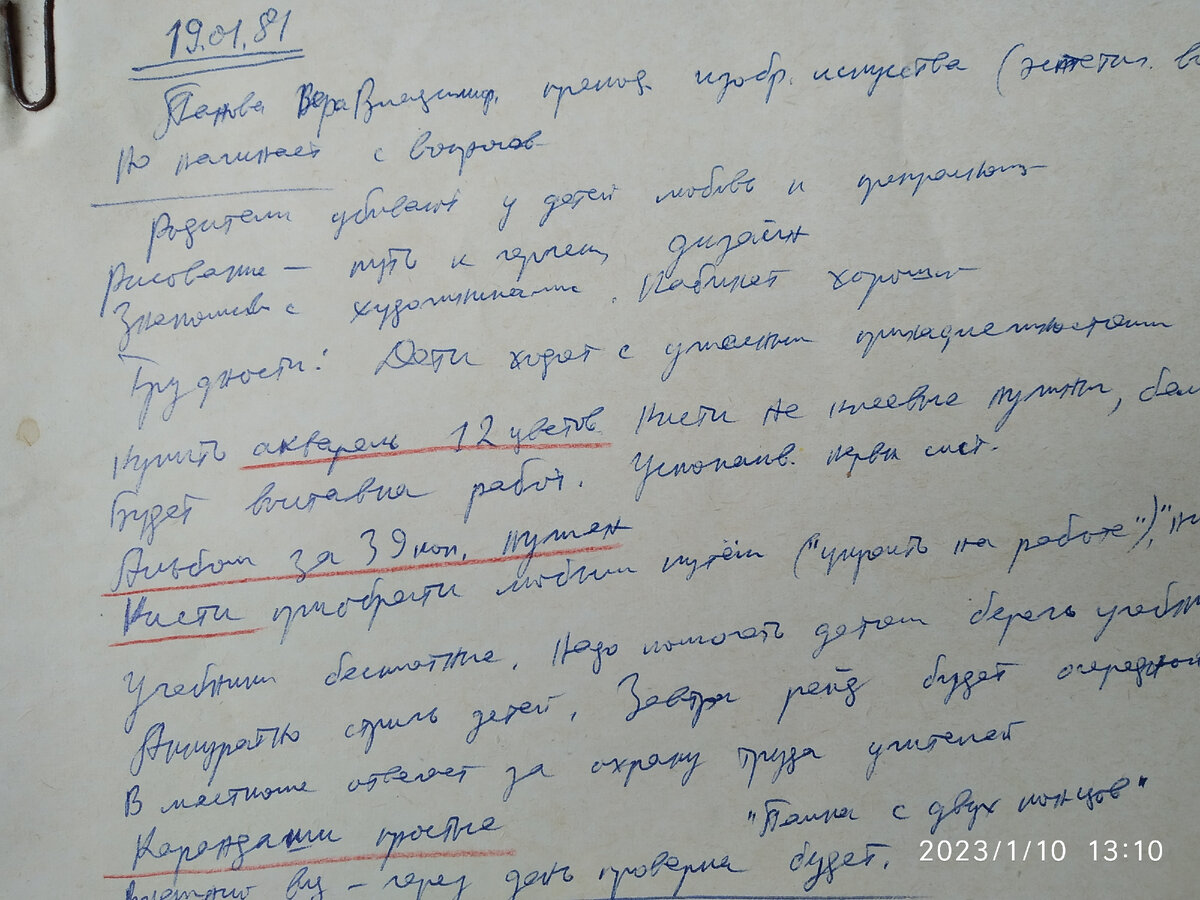 19.01.81
Панова Вера Владимир. препод. изобр. искуства (эстетич. в
Но начинает с вопросов
Родители убивают у детей любовь к
Рисование – путь к черчен, дизайн
Знакомств с художниками. Кабинет хороший
Трудности: Дети ходят с ужасными принадлежностями
Купить акварель 12 цветов Кисти не клеевые нужны, бел
Будет выставка работ. Успокаив. нервн сист.
Альбом за 39 коп. нужен
Кисти приобрести любым путём ("украсть на работе"),
Учебники бесплатные. Надо помогать детям беречь учебн
Аккуратно стричь детей. Завтра рейд будет очередной
В месткоме отвечает за охрану труда учителей
Карандаши простые
"Палка с двух концов"
Внешний вид – через день проверка будет.
2023/1/10 13:10